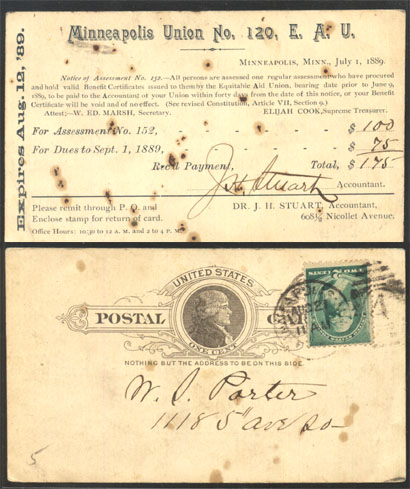 Minneapolis Union No. 120, E. A. U.
Expires Aug. 12, '89.
MINNEAPOLIS, MINN., July 1, 1889.
Notice of Assessment No. 152.—All persons are assessed one regular assessment who have procured
and hold valid Benefit Certificates issued to them by the Equitable Aid Union, bearing date prior to June 9,
1889, to be paid to the Accountant of your Union within forty days from the date of this notice, or your Benefit
Certificate will be void and of no effect. (See revised Constitution, Article VII, Section 9.)
Attest:—W. ED. MARSH, Secretary. ELIJAH COOK, Supreme Treasurer.
For Assessment No. 152, $ 100
For Dues to Sept. 1, 1889, $ 75
Rec'd Payment, Total, $ 175
J. H. Stuart Accountant.
Please remit through P. O. and
Enclose stamp for return of card.
DR. J. H. STUART, Accountant,
608½ Nicollet Avenue.
Office Hours: 10:30 to 12 A. M. and 2 to 4 P. M.
UNITED STATES
POSTAL
ONE CENT
NOTHING BUT THE ADDRESS TO BE ON THIS SIDE.
W. J. Porter
1118 5" ave so
5